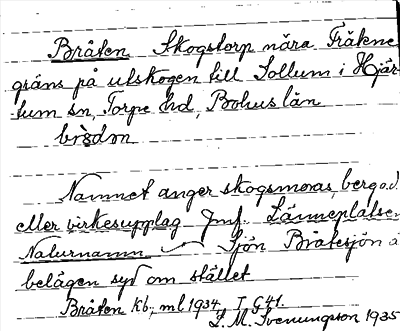 Bråten Skogstorp nära Fräkne
gräns på utskogen till Sollum i Hjär
tum sn, Torpe hd, Bohus län
Namnet anger skogsmoras, berg o.d.
eller virkesupplag Jmf. Länneplatsen
Naturnamn Sjön Bråtesjön ä
belägen syd om stället
Bråten kb, ml 1934. T G41.
L. M. Svenungson 1935